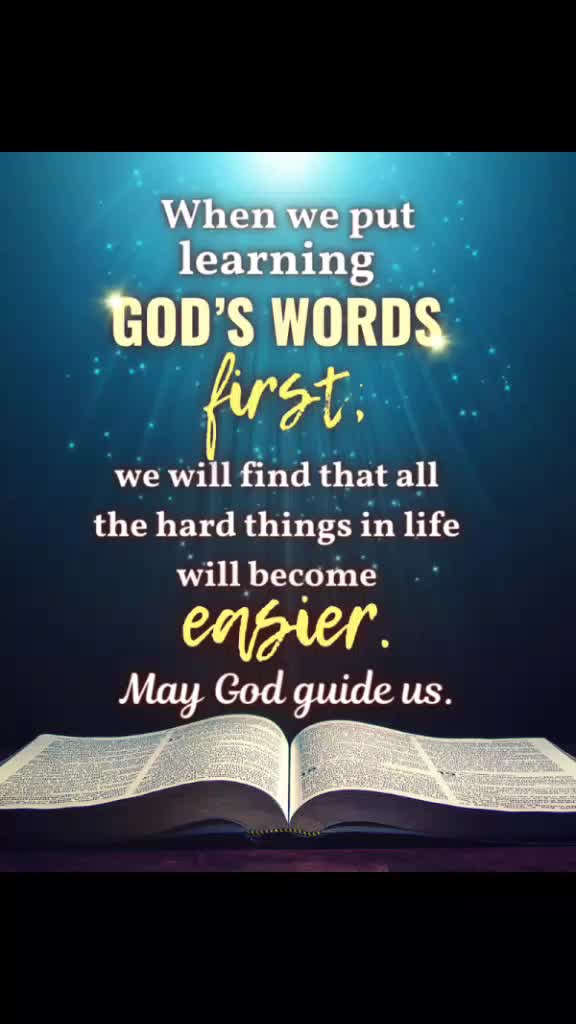 When we put
learning
GOD'S WORDS
first,
we will find that all
the hard things in life
will become
easier.
May God guide us.